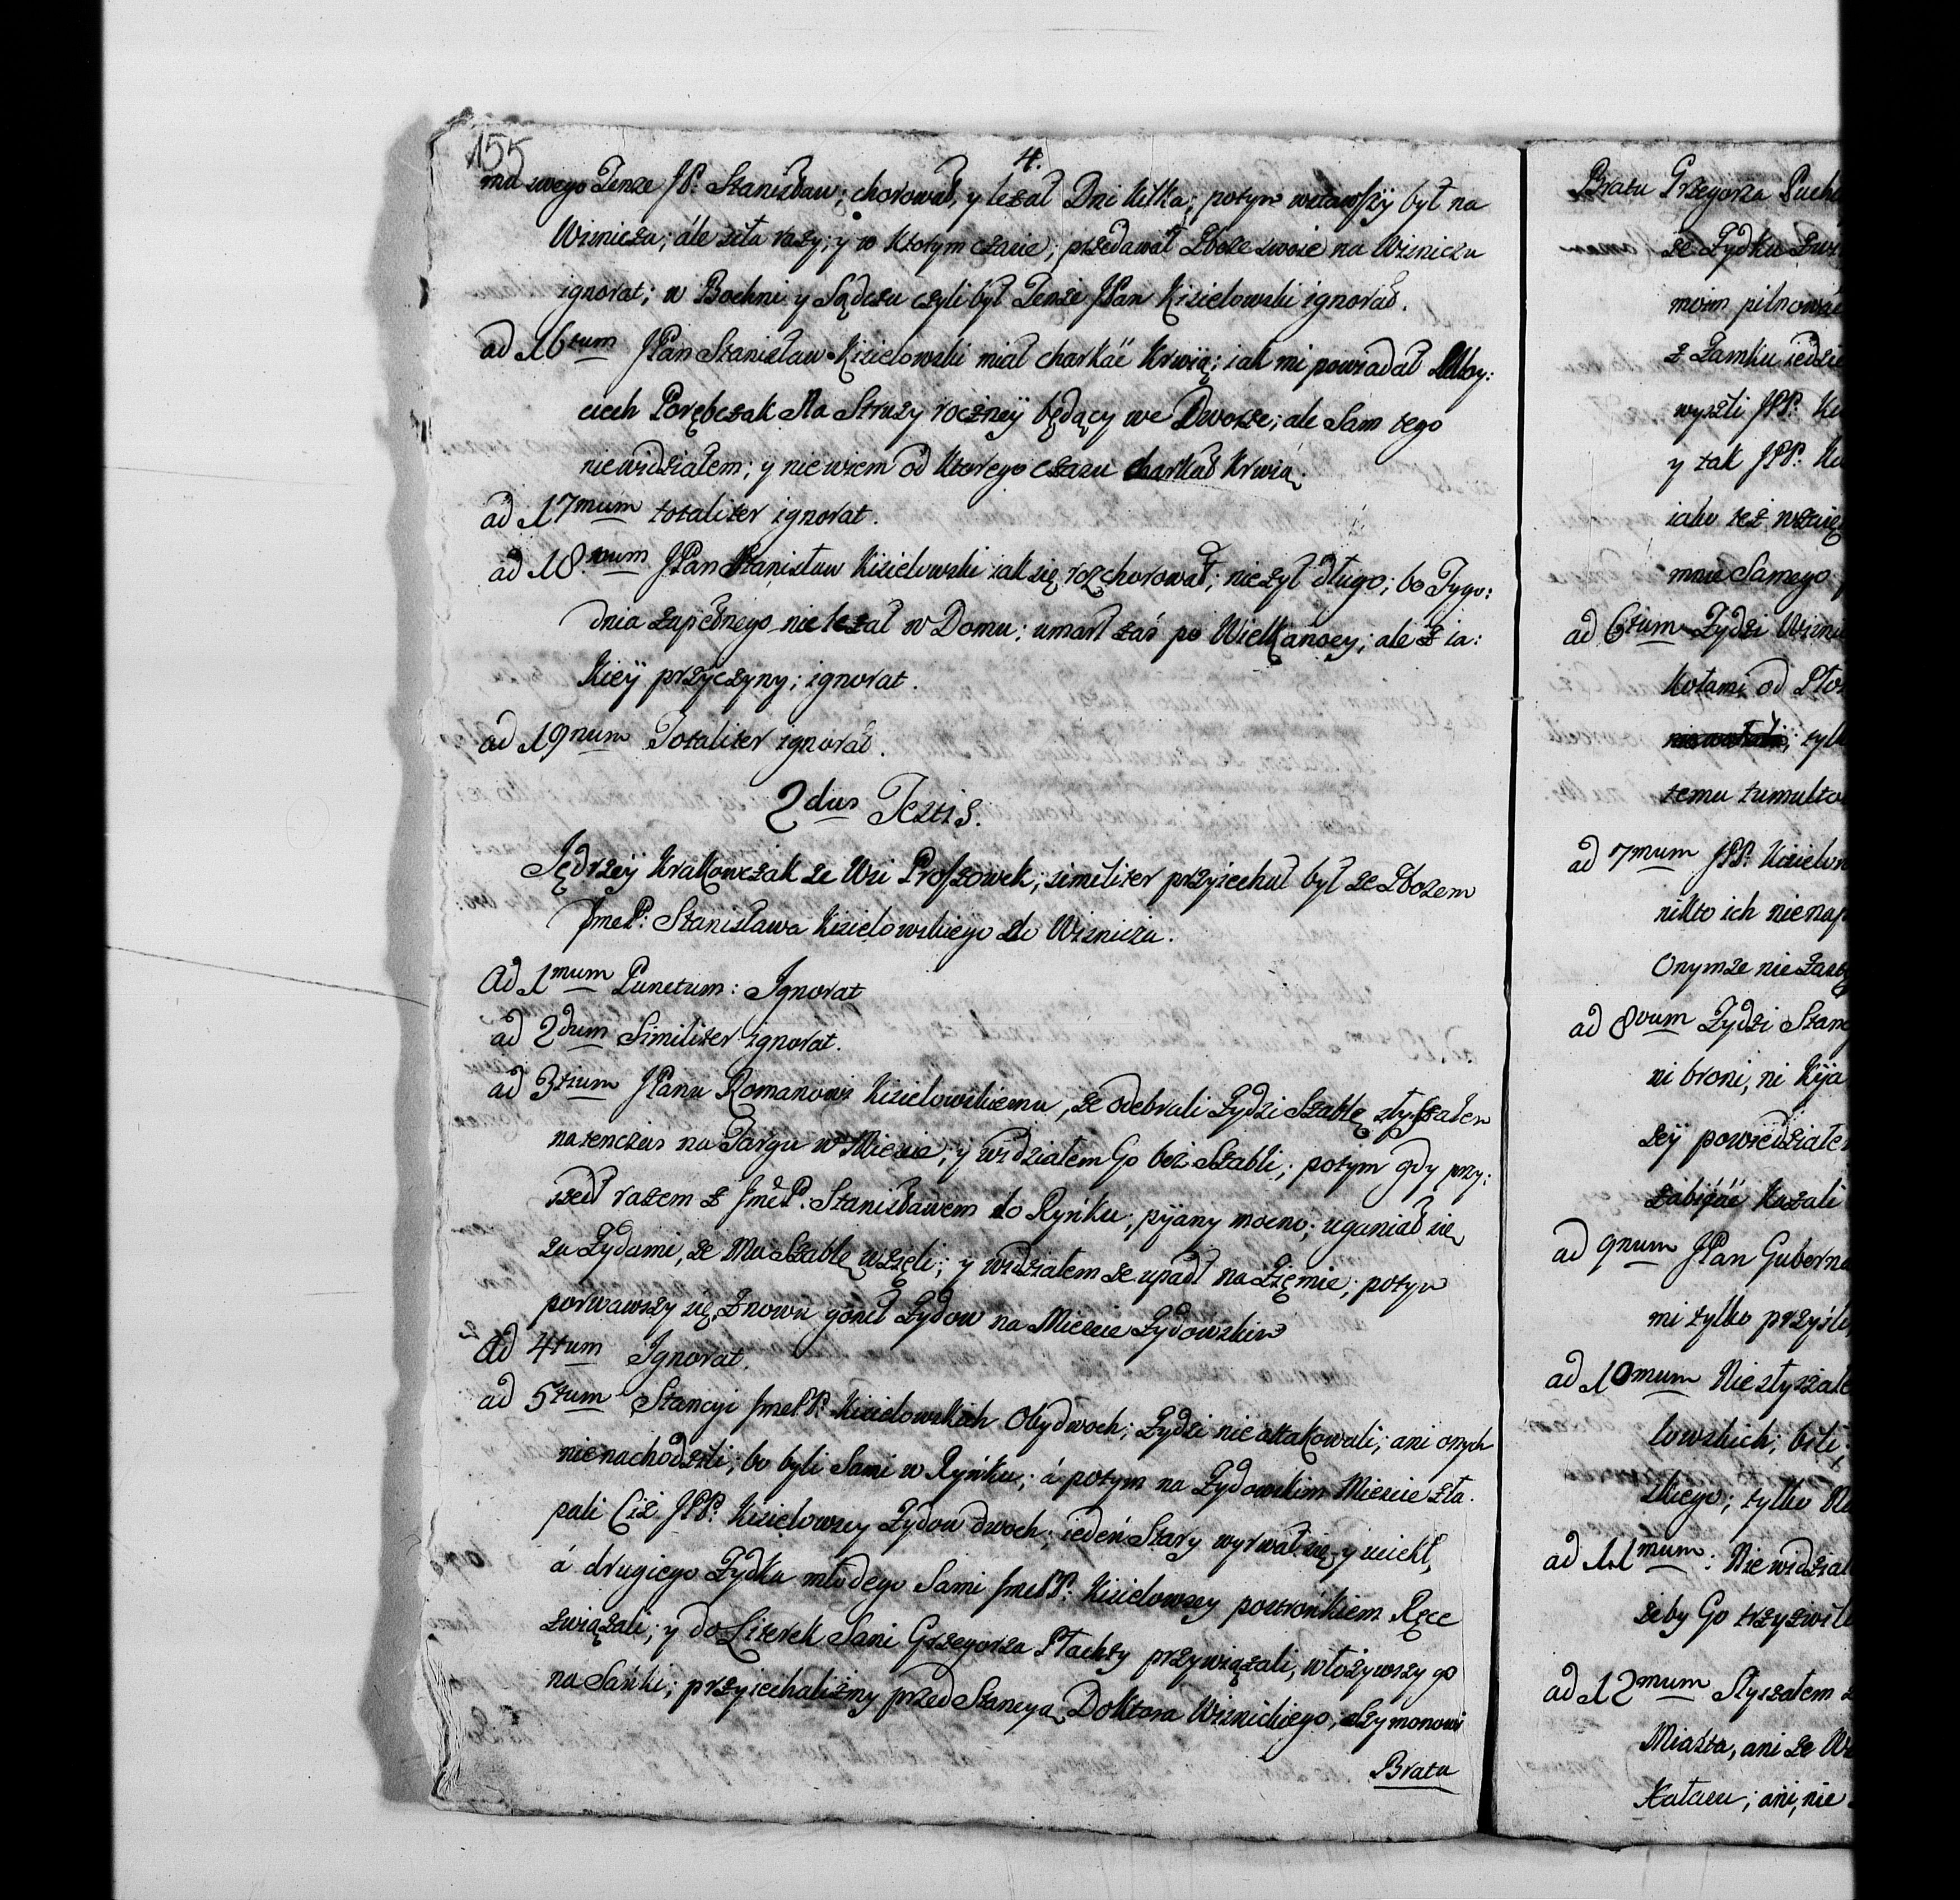 155
4.
mu swego Tenze JP: Stanisław; chorował, y leżał Dni kilka; potym wstawszy był na
Wiśniczu; ále siła razy; y w ktorym czasie; przedawał Zboze swoie na Wiśniczu
ignorat; w Bochni y Sądczu czyli był Tenże JPan Kisielowski ignorat.
ad 16tum JPan Stanisław Kisielowski miał charkać krwią; iak mi powiadał Woy:
ciech Porębczak Na Straży rocżney będący we Dworze; ale Sam tego
niewidziałem; y nie wiem od ktorego czasu charkał krwią.
ad 17mum totaliter ignorat.
ad 18num JPan Stanisław Kisielowski iak się rozchorował; nie żył długo; bo Tygo:
dnia zupełnego nie leżał w Domu; umarł zaś po Wielkanocy; ale z ia:
kiey przyczyny; ignorat.
ad 19num Totaliter ignorat.
2dus Testis.
Jędrzey Krakowczak ze Wsi Proszowek; similiter przyiechał był ze Zbozem
JmcP: Stanisława Kisielowskiego do Wisnicza.
Ad 1mum Punctum: Ignorat
ad 2dum Similiter ignorat.
ad 3tium JPanu Romanowi Kisielowskiemu, ze odebrali Zydzi Szablę słyszałem
natenczas na Targu w Miescie; y widziałem Go bez Szabli; potym gdy przy:
szedł razem z JmcP. Stanisławem do Rynku; pijany mocno; uganiał się
za Zydami, ze Mu Szablę wzięli; y widziałem ze upadł na Ziemię; potym
porwawszy się, znowu gonił Zydow na Miescie Zydowskim
Ad 4tum Ignorat.
ad 5tum Stancyi JmcPP. Kisielowskich Obydwoch; Zydzi nie attakowali; ani onych
nienachodzili; bo byli Sami w Rynku; á potym na Zydowskim Miescie zła.
pali Ciż JPP. Kisielowscy Zydow dwoch; ieden Stary wyrwał się y uciekł,
á drugiego Zydka młodego Sami JmcPP. Kisielowscy postronkiem Ręce
związali; y do Literek Sani Grzegorza Płachty przywiązali, włożywszy go
na Sanki; przyiechalismy przed Stancyą Doktora Wisnickiego; Szymonowi
Brata
Bratu Grzegorza
ze Zydka
moim pilnować
z Zamku
wyszli JPP.
y tak JPP.
iako też
mnie Samego
ad 6tum Zydzi
kołami od
tylko
temu
ad 7mum JPP.
nikto ich
Onymze nie
ad 8vum Zydzi
ni broni, ni
powiedziałem
kazali
ad 9num JPan
mi tylko
ad 10mum Nie
lowskich; bili
tylko
ad 11mum: Nie
zeby Go
ad 12mum Słyszałem
Miasta, ani ze
ani, nie